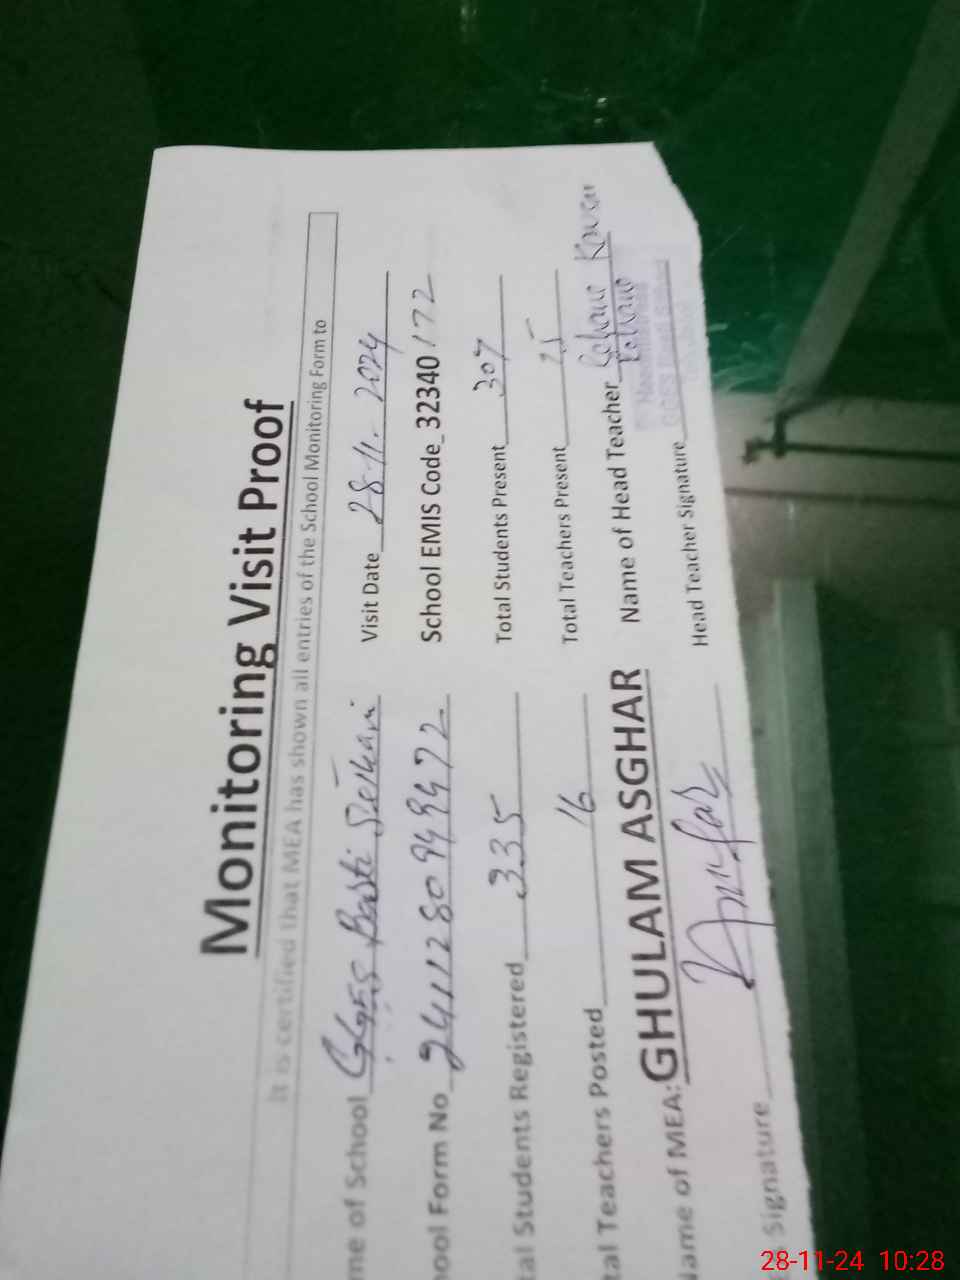 Monitoring Visit Proof
It is certified that MEA has shown all entries of the School Monitoring Form to
me of School GGES Basti Visit Date 28-11-2024
ool Form No 241128099472 School EMIS Code 32340172
tal Students Registered 335 Total Students Present 307
tal Teachers Posted 16 Total Teachers Present 15
Name of MEA: GHULAM ASGHAR Name of Head Teacher
Signature Head Teacher Signature
28-11-24 10:28